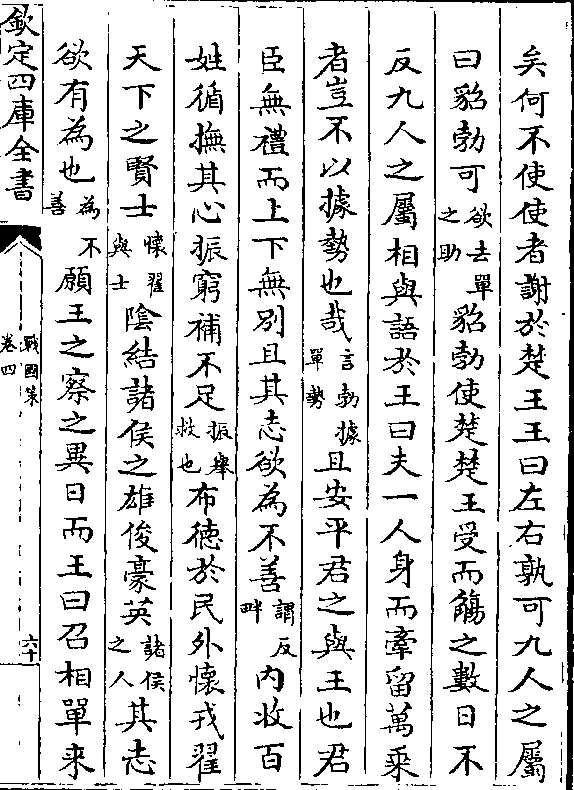 矣何不使使者謝於楚王王曰左右孰可九人之屬
曰貂勃可欲去單之助貂勃使楚楚王受而觴之數日不
反九人之屬相與語於王曰夫一人身而牽留萬乘
者豈不以據勢也哉言勃據單勢且安平君之與王也君
臣無禮而上下無別且其志欲為不善謂反畔內收百
姓循撫其心振窮補不足振舉救也布德於民外懷戎翟
天下之賢士懷翟與士陰結諸侯之雄俊豪英諸侯之人其志
欲有為也為不善願王之察之異日而王曰召相單来
欽定四庫全書
戰國策
卷四
六十